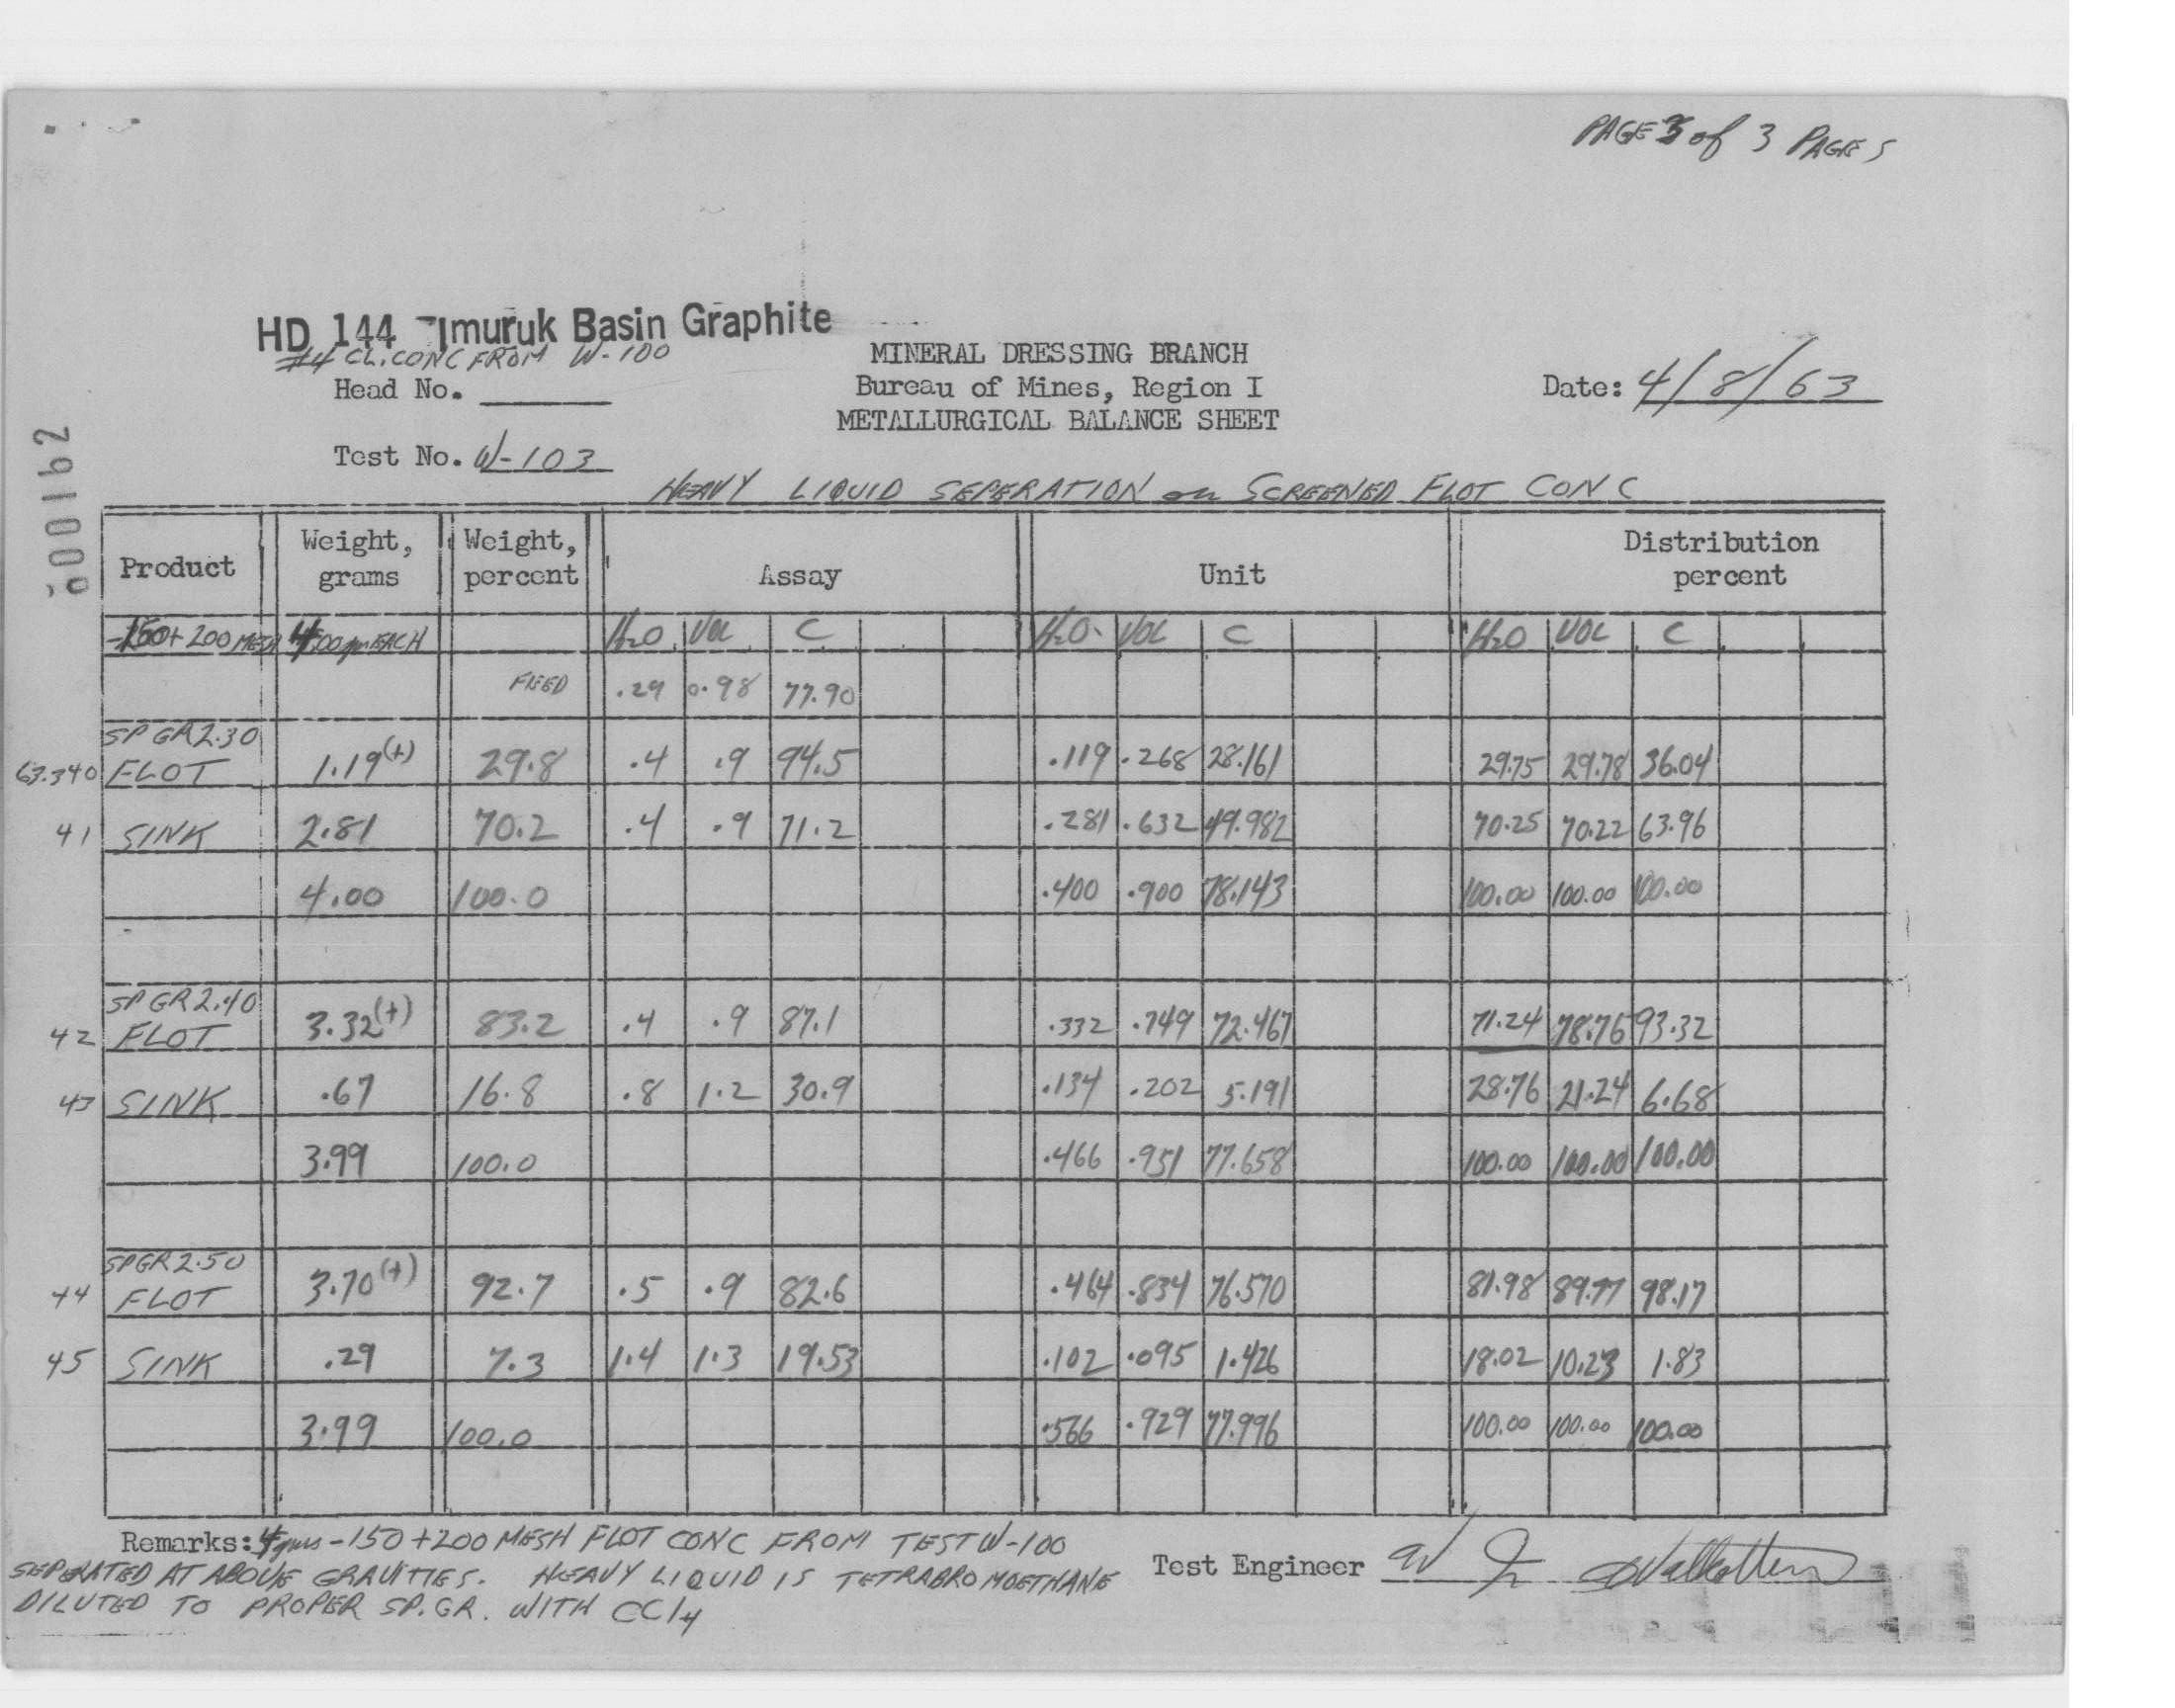 PAGE 3 of 3 PAGES
HD 144 Imuruk Basin Graphite
#4 CL. CONC FROM W-100
MINERAL DRESSING BRANCH
Head No.
Bureau of Mines, Region I
Date: 4/8/63
METALLURGICAL BALANCE SHEET
Test No. W-103
HEAVY LIQUID SEPERATION on SCREENED FLOT CONC
Product Weight, grams Weight, percent Assay Unit Distribution percent
-150+200 MESH 4.00 gm EACH H2O VOL C H2O VOL C H2O VOL C
FEED .29 0.98 77.90
SP GR 2.30
63.340 FLOT 1.19(+) 29.8 .4 .9 94.5 .119 .268 28.161 29.75 29.78 36.04
41 SINK 2.81 70.2 .4 .9 71.2 .281 .632 49.982 70.25 70.22 63.96
4.00 100.0 .400 .900 78.143 100.00 100.00 100.00
SP GR 2.40
42 FLOT 3.32(+) 83.2 .4 .9 87.1 .332 .749 72.467 71.24 78.76 93.32
43 SINK .67 16.8 .8 1.2 30.9 .134 .202 5.191 28.76 21.24 6.68
3.99 100.0 .466 .951 77.658 100.00 100.00 100.00
SP GR 2.50
44 FLOT 3.70(+) 92.7 .5 .9 82.6 .464 .834 76.570 81.98 89.77 98.17
45 SINK .29 7.3 1.4 1.3 19.53 .102 .095 1.426 18.02 10.23 1.83
3.99 100.0 .566 .929 77.996 100.00 100.00 100.00
Remarks: 4 gms -150+200 MESH FLOT CONC FROM TEST W-100
SEPERATED AT ABOVE GRAVITIES. HEAVY LIQUID IS TETRABROMOETHANE
DILUTED TO PROPER SP. GR. WITH CCl4
Test Engineer